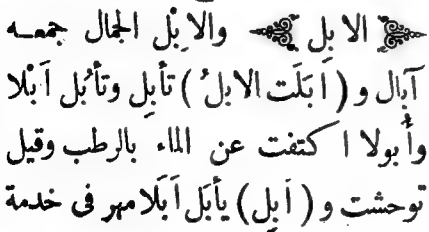 الابل والاِبْل الجمال جمعـه
آبال و ( اَبَلَت الابلُ ) تأبِل وتأبُل اَبْلا
وأُبولا اكتفت عن الماء بالرطب وقيل
توحشت و ( اَبِل ) يأبَل اَبَلا مهر فى خدمة